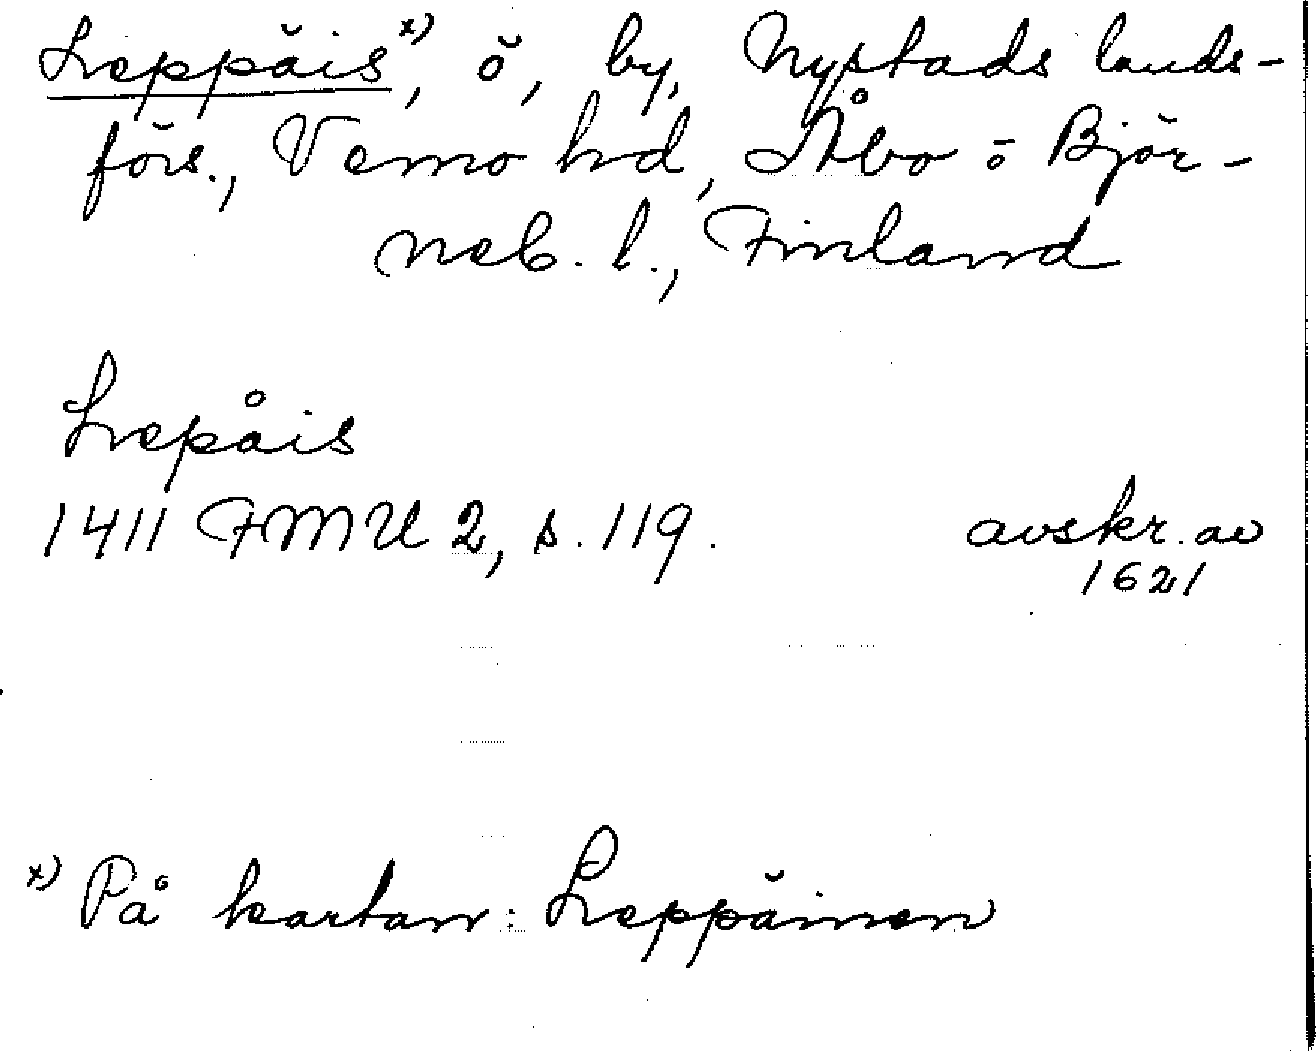 Leppäis x), ö, by, Nystads lands-
förs., Vemo hd, Åbo o Björ-
neb. l., Finland
Lepåis
1411 FMU 2, s. 119. avskr. av
1621
x) På kartan: Leppäinen